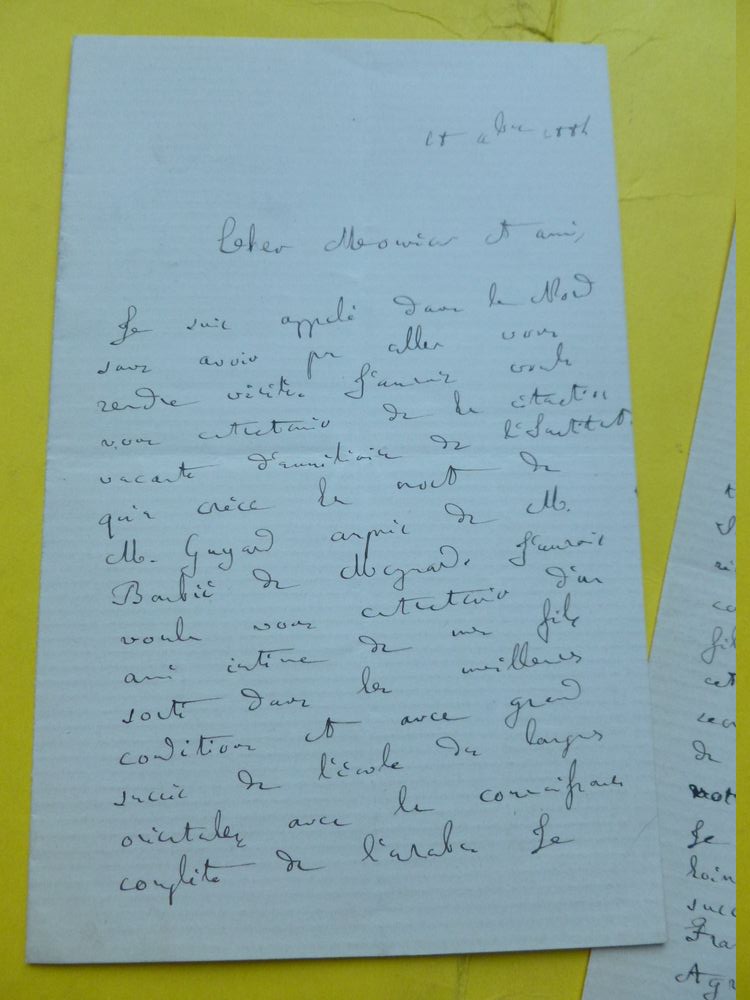 18 8bre 1884
Cher Monsieur et ami,
Je suis appelé dans le Nord
sans avoir pu aller vous
rendre visite. J'aurais voulu
vous entretenir de la situation
vacante d'auxiliaire de l'Institut
qu'a créée la mort de
M. Guyard auprès de M.
Barbié de Meynard. J'aurais
voulu vous entretenir d'un
ami intime de mes fils
sorti dans les meilleures
conditions et avec grand
succès de l'école des langues
orientales avec la connaissance
complète de l'arabe. Je
de
Je
loin
succ
Fra
Agr